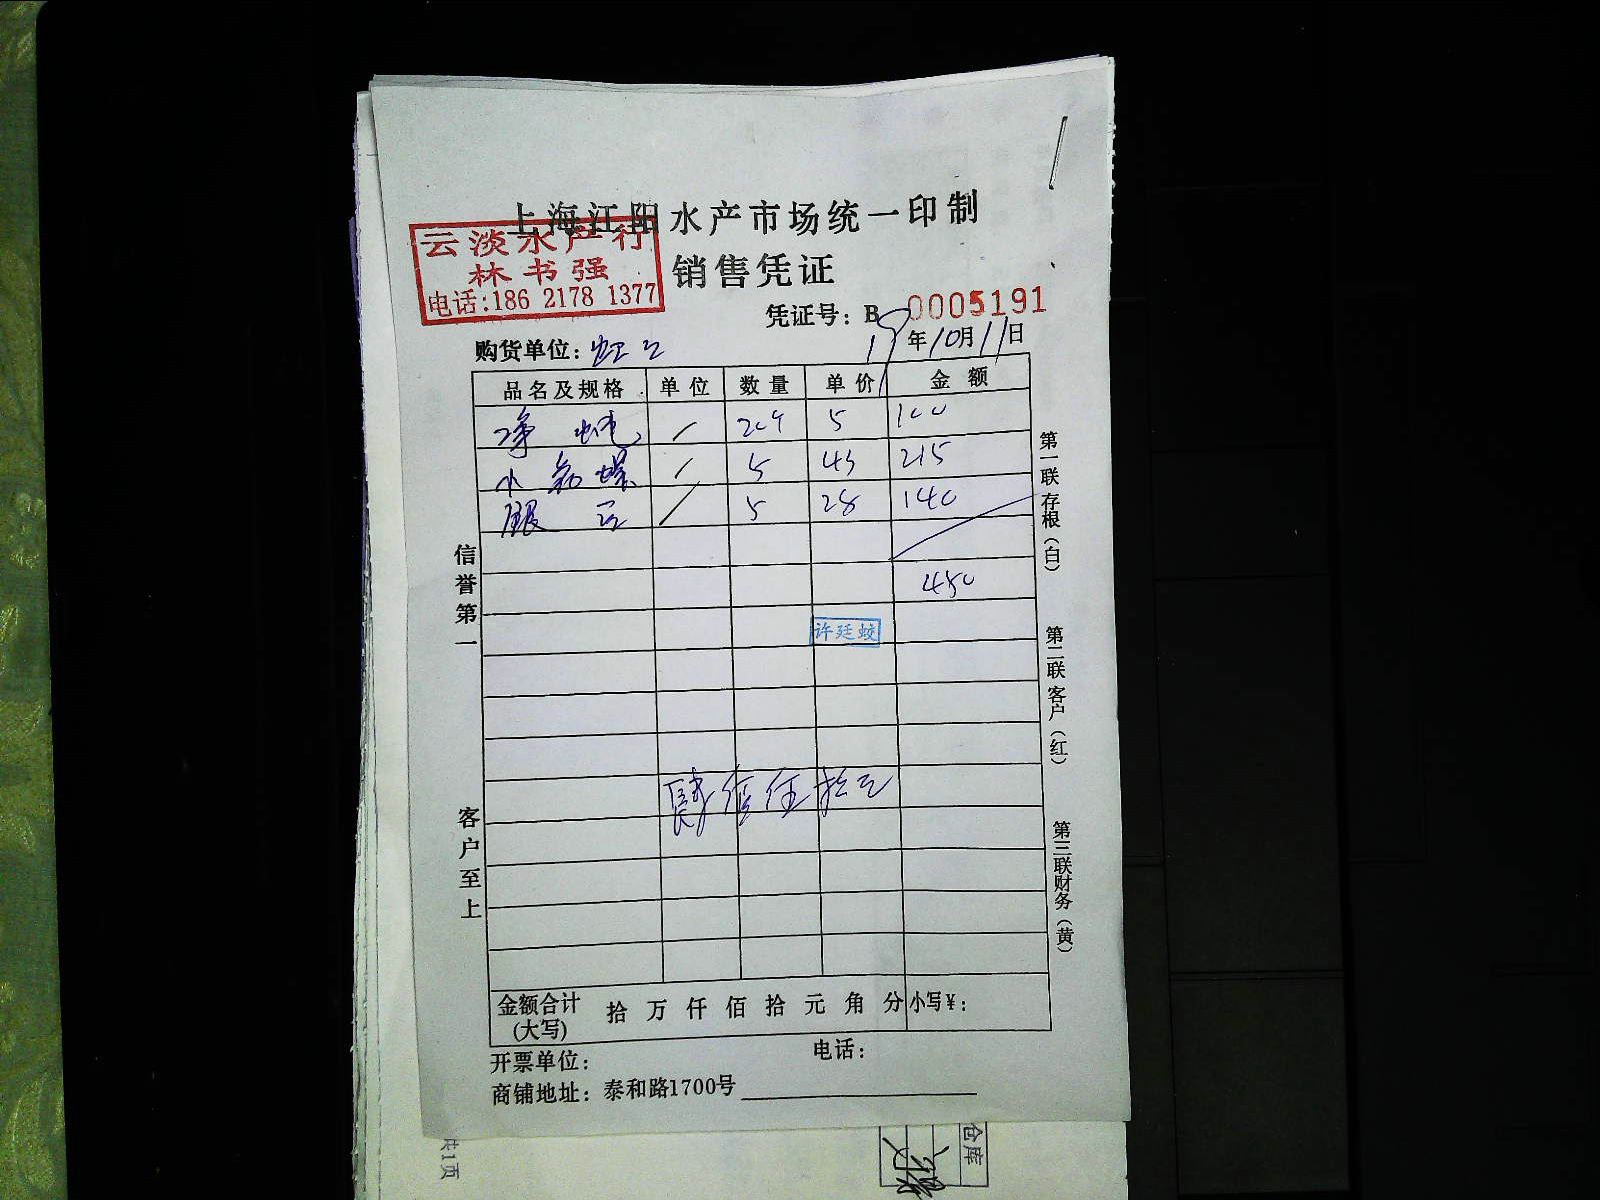 上海江阳水产市场统一印制
云淡水产行
林书强
电话:186 2178 1377
销售凭证
凭证号: B 0005191
购货单位: 虹口 19年10月11日
品名及规格 单位 数量 单价 金额
净 / 5 100
小 螺 / 5 43 215
银 / 5 28 140
450
许廷蛟
肆佰伍拾元
信誉第一
客户至上
第一联存根(白)
第二联客户(红)
第三联财务(黄)
金额合计(大写) 拾 万 仟 佰 拾 元 角 分 小写¥:
开票单位: 电话:
商铺地址: 泰和路1700号
共1页
仓库